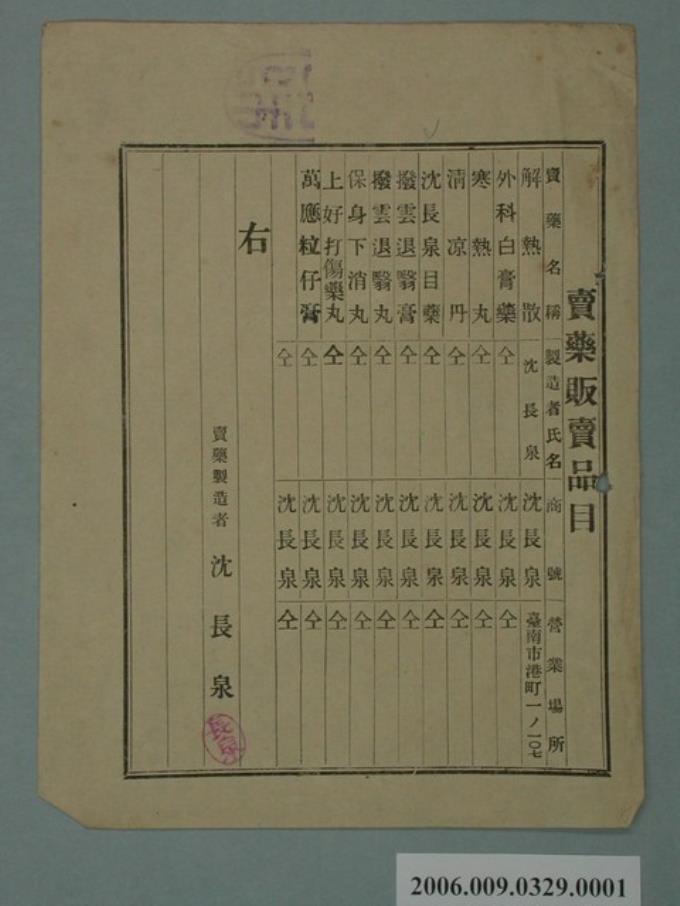 賣藥販賣品目
賣藥名稱 製造者氏名 商號 營業場所
解熱散 沈長泉 沈長泉 臺南市港町一ノ一〇七
外科白膏藥 仝 沈長泉 仝
寒熱丸 仝 沈長泉 仝
清凉丹 仝 沈長泉 仝
沈長泉目藥 仝 沈長泉 仝
撥雲退翳膏 仝 沈長泉 仝
撥雲退翳丸 仝 沈長泉 仝
保身下消丸 仝 沈長泉 仝
上好打傷藥丸 仝 沈長泉 仝
萬應粒仔膏 仝 沈長泉 仝
仝 沈長泉 仝
右
賣藥製造者 沈長泉
2006.009.0329.0001